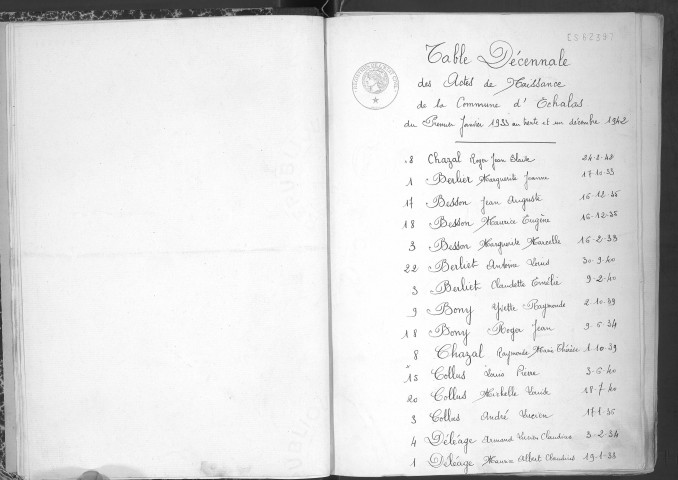 Table Décennale
des Actes de Naissance
de la Commune d'Echalas
du Premier Janvier 1933 au trente et un décembre 1942
8 Chazal Roger Jean 24-2-42
1 Berlier Marguerite Jeanne 17-10-33
17 Besson Jean Auguste 16-12-35
18 Besson Maurice Eugène 16-12-35
3 Besson Marguerite Marcelle 16-2-33
22 Berliet Antoine Louis 30-9-40
3 Berliet Claudette Amélie 9-2-40
9 Bony Yvette Raymonde 2-10-39
18 Bony Roger Jean 9-6-34
8 Chazal Raymonde Marie Thérèse 1-10-39
15 Collus Louis Pierre 3-6-40
20 Collus Michelle 18-7-40
3 Collus André Lucien 17-1-36
4 Déléage Armand Lucien Claudius 3-2-34
1 Déléage Maurice Albert Claudius 19-1-33